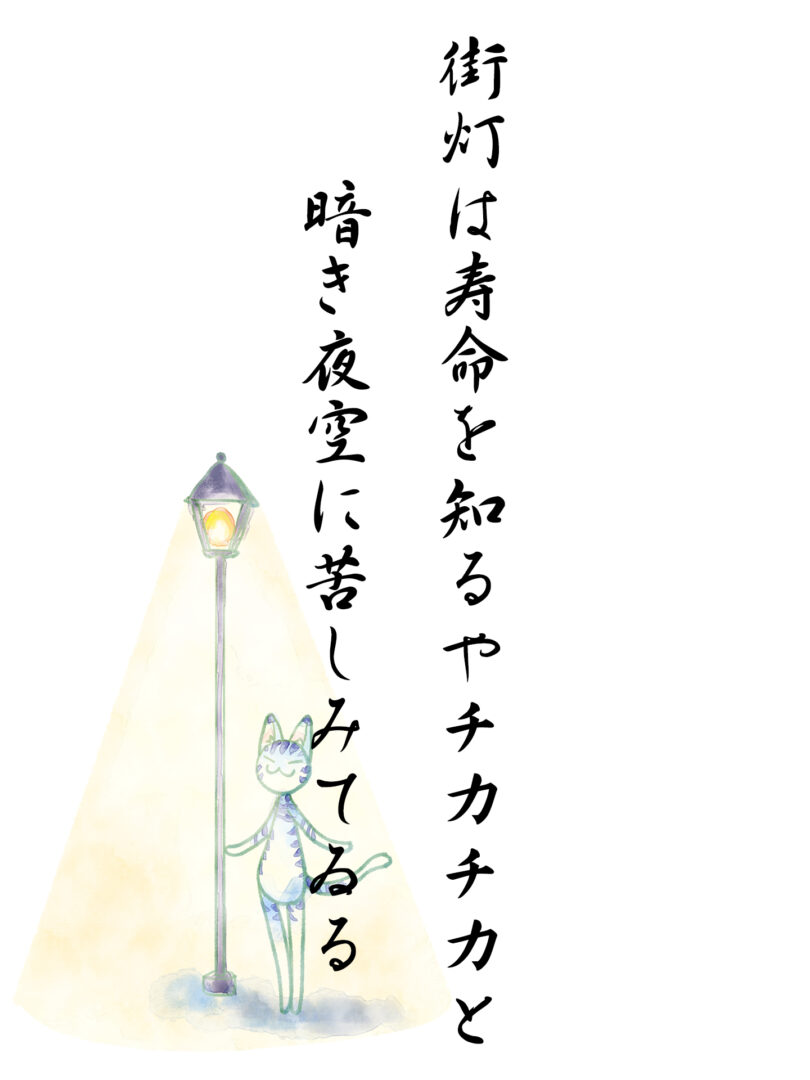 街灯は寿命を知るやチカチカと
暗き夜空に苦しみてゐる